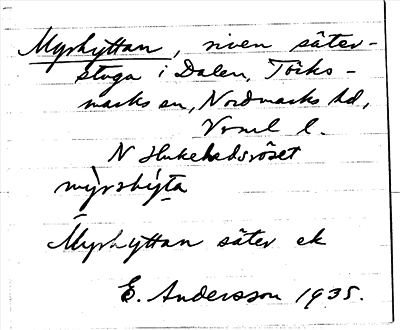 Myrhyttan, riven säter-
stuga i Dalen, Töcks-
marks sn, Nordmarks hd,
Vrml l.
N Hukekedsröset
myrshýta
Myrhyttan säter ek
E. Andersson 1935.